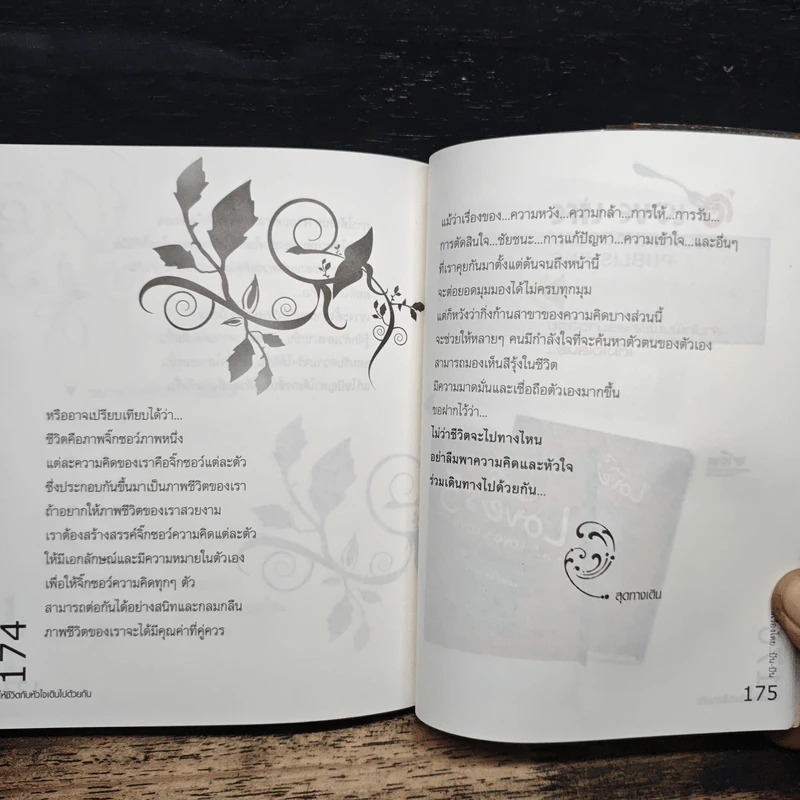 หรืออาจเปรียบเทียบได้ว่า...
ชีวิตคือภาพจิ๊กซอว์ภาพหนึ่ง
แต่ละความคิดของเราคือจิ๊กซอว์แต่ละตัว
ซึ่งประกอบกันขึ้นมาเป็นภาพชีวิตของเรา
ถ้าอยากให้ภาพชีวิตของเราสวยงาม
เราต้องสร้างสรรค์จิ๊กซอว์ความคิดแต่ละตัว
ให้มีเอกลักษณ์และมีความหมายในตัวเอง
เพื่อให้จิ๊กซอว์ความคิดทุกๆ ตัว
สามารถต่อกันได้อย่างสนิทและกลมกลืน
ภาพชีวิตของเราจะได้มีคุณค่าที่คู่ควร
174
ให้ชีวิตกับหัวใจเดินไปด้วยกัน
แม้ว่าเรื่องของ...ความหวัง...ความกล้า...การให้...การรับ...
การตัดสินใจ...ชัยชนะ...การแก้ปัญหา...ความเข้าใจ...และอื่นๆ
ที่เราคุยกันมาตั้งแต่ต้นจนถึงหน้านี้
จะต่อยอดมุมมองได้ไม่ครบทุกมุม
แต่ก็หวังว่ากิ่งก้านสาขาของความคิดบางส่วนนี้
จะช่วยให้หลายๆ คนมีกำลังใจที่จะค้นหาตัวตนของตัวเอง
สามารถมองเห็นสีรุ้งในชีวิต
มีความมาดมั่นและเชื่อถือตัวเองมากขึ้น
ขอฝากไว้ว่า...
ไม่ว่าชีวิตจะไปทางไหน
อย่าลืมพาความคิดและหัวใจ
ร่วมเดินทางไปด้วยกัน...
สุดทางเดิน
175